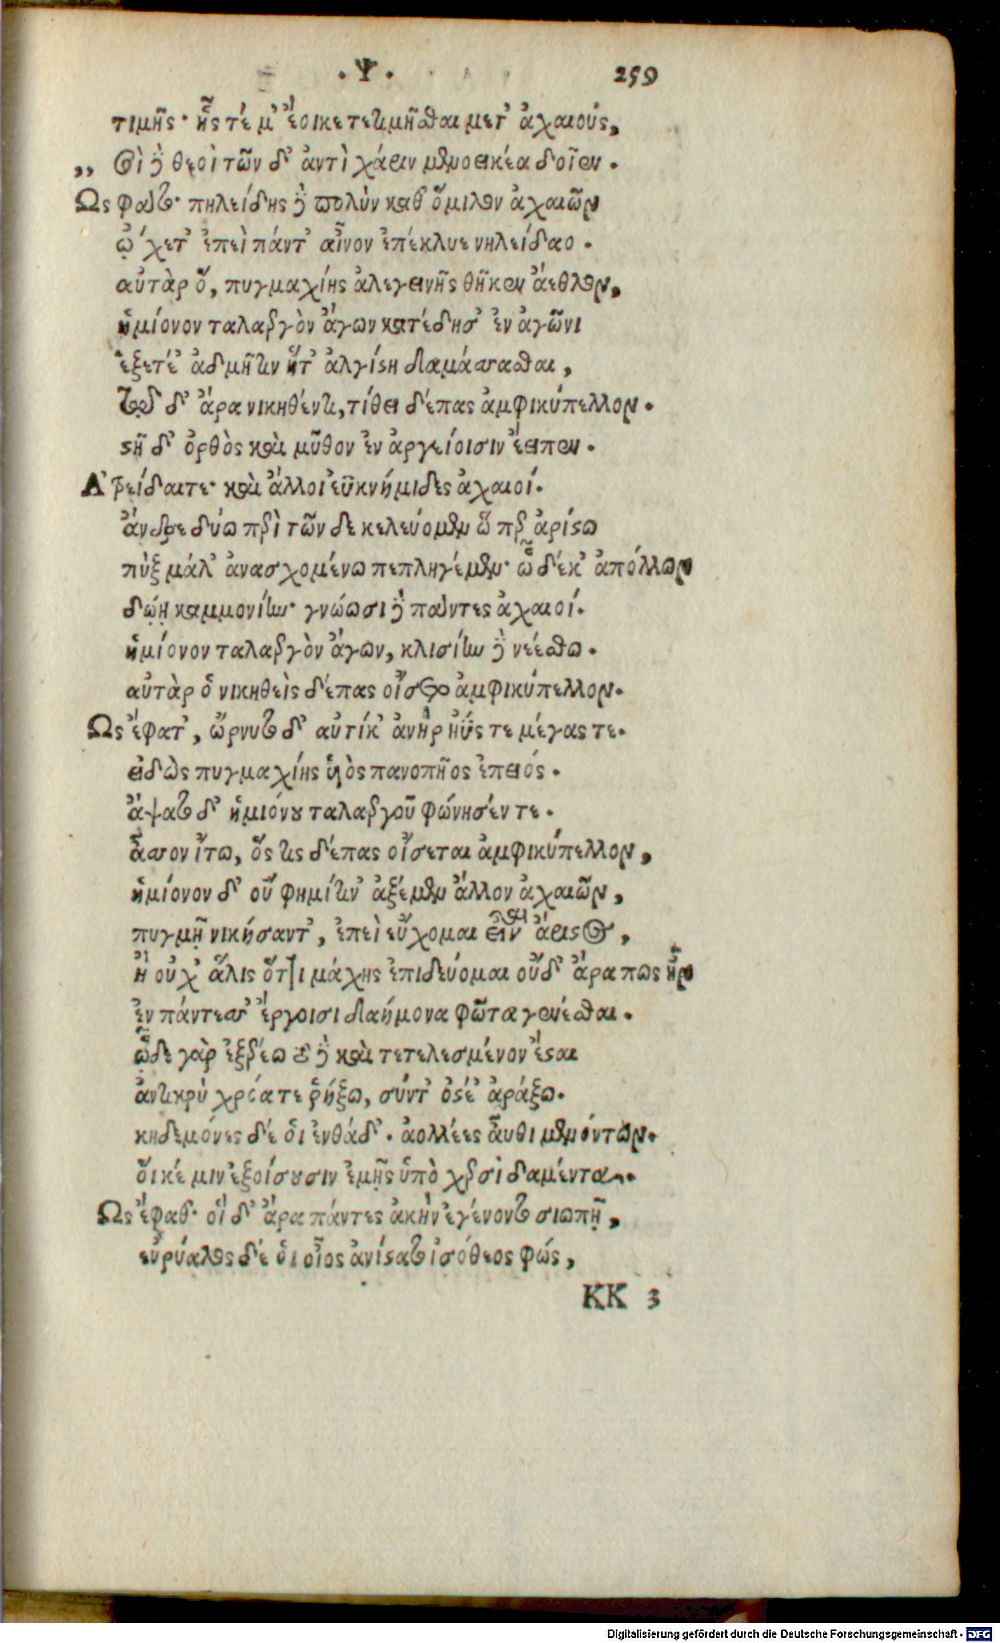 .Ψ. 259
τιμῆς· ἧς τέ μ' ἔοικε τετιμῆσθαι μετ' ἀχαιούς,
,, σοὶ δὲ θεοὶ τῶν δ' ἀντὶ χάριν μενοεικέα δοῖεν.
Ως φάτο· πηλείδης δὲ πολὺν καθ' ὅμιλον ἀχαιῶν
ᾤχετ' ἐπεὶ πάντ' αἶνον ἐπέκλυε νηλείδαο.
αὐτὰρ ὅ, πυγμαχίης ἀλεγεινῆς θῆκεν ἄεθλον,
ἡμίονον ταλαεργὸν ἄγων κατέδησ' ἐν ἀγῶνι
ἑξετέ' ἀδμῆτιν ἥτ' ἀλγίστη δαμάσασθαι,
τῷ δ' ἄρα νικηθέντι, τίθει δέπας ἀμφικύπελλον.
στῆ δ' ὀρθὸς καὶ μῦθον ἐν ἀργείοισιν ἔειπεν.
Α'τρείδαιτε· καὶ ἄλλοι ἐϋκνήμιδες ἀχαιοί.
ἄνδρε δύω περὶ τῶν δε κελεύομεν ὥ περ ἀρίστω
πὺξ μάλ' ἀνασχομένω πεπληγέμεν· ᾧ δέκ' ἀπόλλων
δώῃ καμμονίην· γνώωσι δὲ πάντες ἀχαιοί.
ἡμίονον ταλαεργὸν ἄγων, κλισίην δὲ νεέσθω.
αὐτὰρ ὁ νικηθεὶς δέπας οἴσεται ἀμφικύπελλον.
Ως ἔφατ', ὤρνυτο δ' αὐτίκ' ἀνὴρ ἠΰς τε μέγας τε.
εἰδὼς πυγμαχίης υἱὸς πανοπῆος ἐπειός.
ἅψατο δ' ἡμιόνου ταλαεργοῦ φώνησέν τε.
ἆσσον ἴτω, ὅς τις δέπας οἴσεται ἀμφικύπελλον,
ἡμίονον δ' οὔ φημί τιν' ἀξέμεν ἄλλον ἀχαιῶν,
πυγμῇ νικήσαντ', ἐπεὶ εὔχομαι εἶναι ἄριστος,
ἢ οὐχ' ἅλις ὅττι μάχης ἐπιδεύομαι οὔδ' ἄρα πως ἦν
ἐν πάντεσσ' ἔργοισι δαήμονα φῶτα γενέσθαι.
ὧδε γὰρ ἐξερέω τὸ δὲ καὶ τετελεσμένον ἔσται
ἀντικρὺ χρόα τε ῥήξω, σύντ' ὀστέ' ἀράξω.
κηδεμόνες δέ οἱ ἐνθάδ'. ἀολλέες αὖθι μενόντων.
οἵ κέ μιν ἐξοίσουσιν ἐμῇς ὑπὸ χερσὶ δαμέντα.
Ως ἔφαθ'· οἱ δ' ἄρα πάντες ἀκὴν ἐγένοντο σιωπῇ,
εὐρύαλος δέ οἱ οἶος ἀνίστατο ἰσόθεος φώς,
KK 3
Digitalisierung gefördert durch die Deutsche Forschungsgemeinschaft - DFG